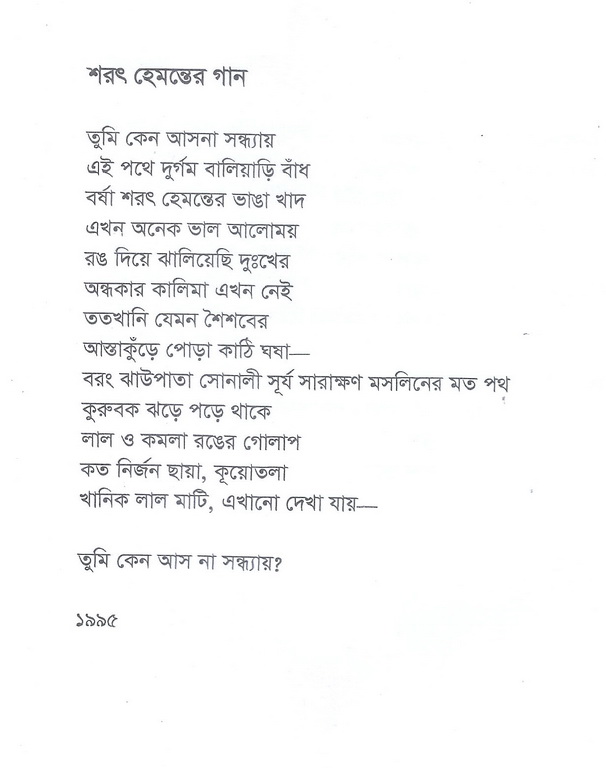 শরৎ হেমন্তের গান
তুমি কেন আসনা সন্ধ্যায়
এই পথে দুর্গম বালিয়াড়ি বাঁধ
বর্ষা শরৎ হেমন্তের ভাঙা খাদ
এখন অনেক ভাল আলোময়
রঙ দিয়ে ঝালিয়েছি দুঃখের
অন্ধকার কালিমা এখন নেই
ততখানি যেমন শৈশবের
আস্তাকুঁড়ে পোড়া কাঠি ঘষা—
বরং ঝাউপাতা সোনালী সূর্য সারাক্ষণ মসলিনের মত পথ
কুরুবক ঝড়ে পড়ে থাকে
লাল ও কমলা রঙের গোলাপ
কত নির্জন ছায়া, কূয়োতলা
খানিক লাল মাটি, এখানো দেখা যায়—
তুমি কেন আস না সন্ধ্যায়?
১৯৯৫